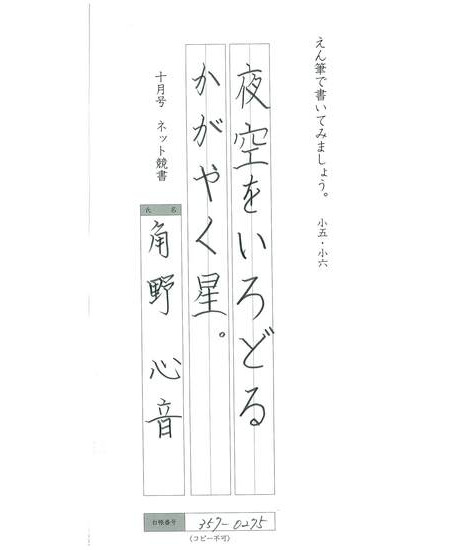 えん筆で書いてみましょう。 小五・小六
夜空をいろどる
かがやく星。
十月号 ネット競書
氏名
角野 心音
台帳番号 357-0275
(コピー不可)